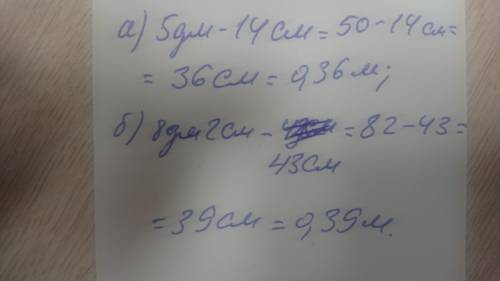 а) 5дм-14см=50-14см=
=36см=0,36м;
б) 8дм2см- =82-43=
43см
=39см=0,39м.